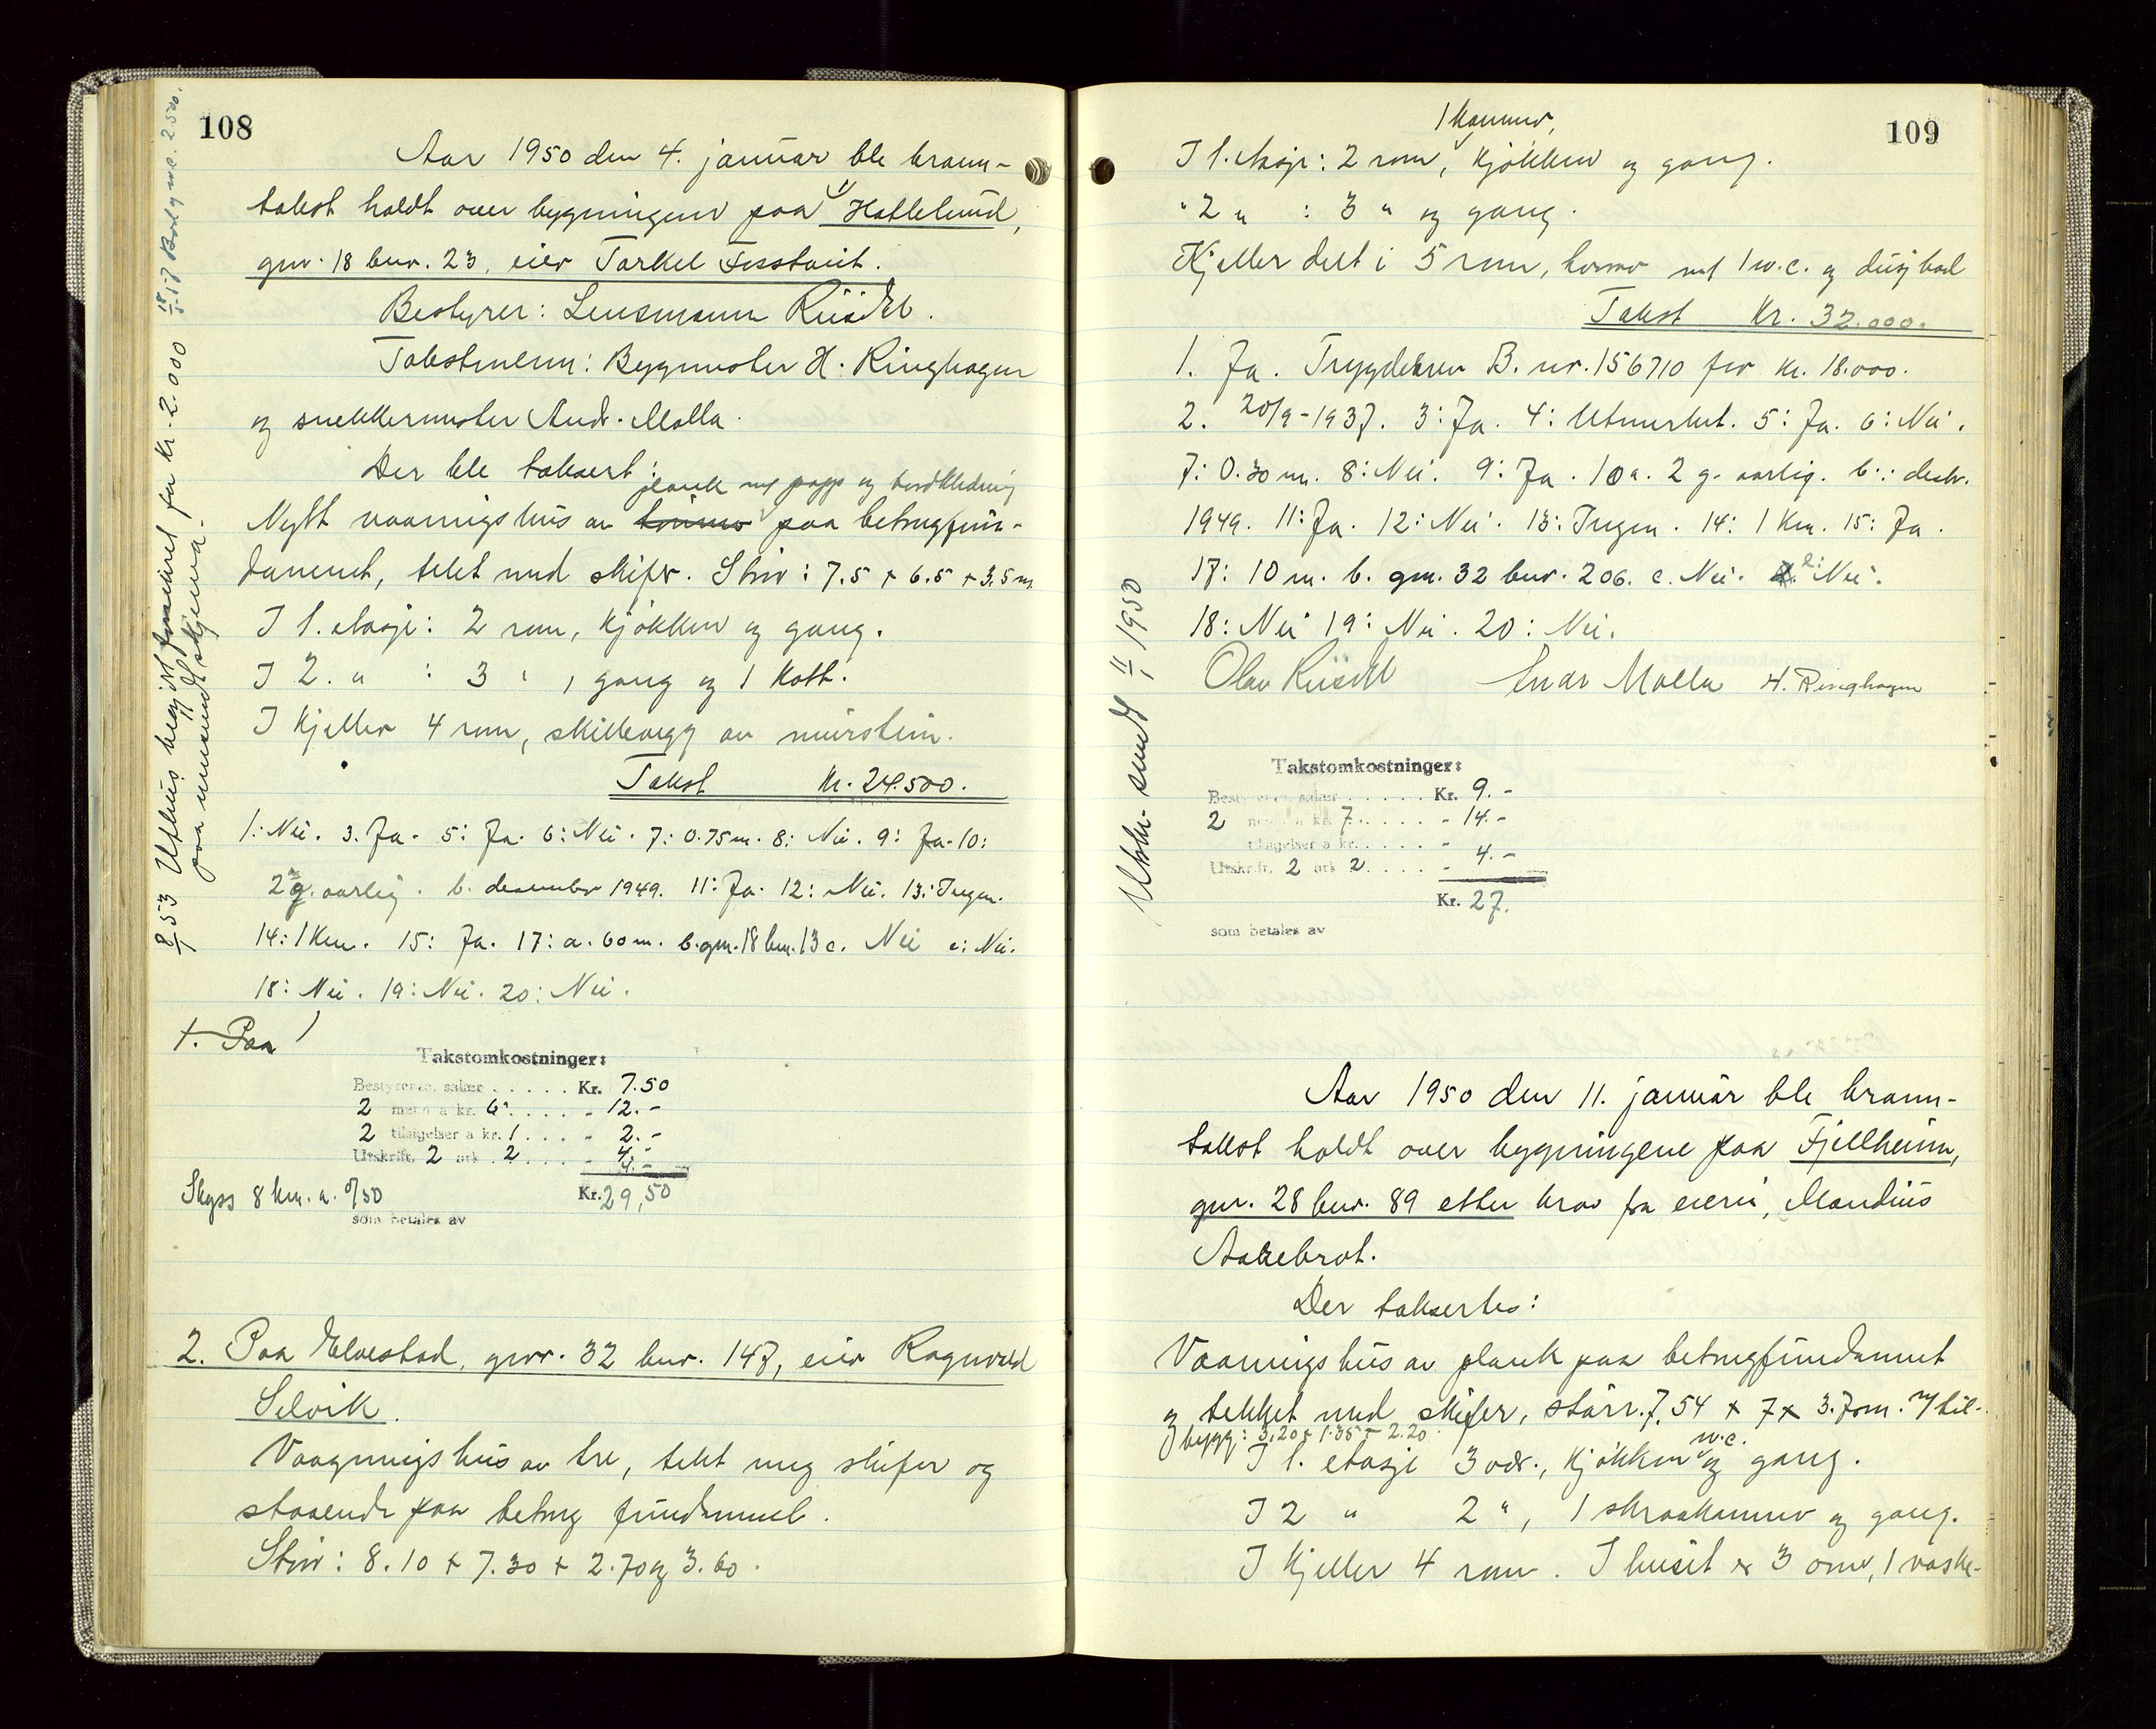 108
Aar 1950 den 4. januar ble brann-
takst holdt over bygningene paa Hatlelund,
gnr. 18 bnr. 23, eier Torkel
Bestyrer: Lensmann
Takstmenn: Bygmester H. Ringhagen
og snekkermester Andr. Malla.
Der ble taksert:
plank m/ papp og bordkledning
Nytt vaaningshus av tømmer paa betongfun-
dament, tekt med skifer. Størr: 7.5 + 6.5 + 3.5 m
I 1. etasje: 2 rom, kjøkken og gang.
I 2. " : 3 " , gang og 1 kott.
I kjeller 4 rom, skillevegg av murstein.
Takst Kr. 24.500.
1: Nei. 3. Ja. 5: Ja. 6: Nei. 7: 0.75 m. 8: Nei. 9: Ja. 10:
2 g. aarlig. b. desember 1949. 11: Ja. 12: Nei. 13: Ingen.
14: 1 km. 15: Ja. 17: a. 60 m. b. gnr. 18 bnr. 13 c. Nei e: Nei.
18: Nei. 19: Nei. 20: Nei.
1. Paa
Takstomkostninger:
Bestyrerens salær . . . . . Kr. 7.50
2 menn a kr. 6. . . . . - 12.-
2 tilsigelser a kr. 1 . . . - 2.-
Utskrift. 2 ark 2 . . . . - 4.-
4.-
Skyss 8 km. a. 0/50 Kr. 29,50
som betales av
2. Paa Elvestad, gnr. 32 bnr. 147, eier Ragnvald
Selvik.
Vaagningshus av tre, tekt meg skifer og
staaende paa betong fundament.
Størr: 8.10 + 7.30 + 2.70 og 3.60.
8/1 53 Uthus begjært for Kr. 2.000
paa innsendt skjema.
109
1 kammer,
I 1. etasje: 2 rom, kjøkken og gang.
" 2 " : 3 " og gang.
Kjeller delt i 5 rom, herav m/ 1 w.c. og dusjbad
Takst Kr. 32.000.
1. Ja. Trygdekassen B. nr. 156710 for kr. 18.000.
2. 20/9-1937. 3: Ja. 4: Utmerket. 5: Ja. 6: Nei.
7: 0.30 m. 8: Nei. 9: Ja. 10 a. 2 g. aarlig. b: desbr.
1949. 11: Ja. 12: Nei. 13: Ingen. 14: 1 km. 15: Ja.
17: 10 m. b. gnr. 32 bnr. 206. c. Nei. e: Nei.
18: Nei 19: Nei. 20: Nei.
Olav Malla H. Ringhagen
Utskr. sendt 11/1 1950
Takstomkostninger:
Bestyrerens salær . . . . . Kr. 9.-
2 menn a kr. 7. . . . . - 14.-
tilsigelser a kr. . . . . -
Utskrift. 2 ark 2 . . . . - 4.-
Kr. 27.
som betales av
Aar 1950 den 11. januar ble brann-
takst holdt over bygningene paa Fjellheim,
gnr. 28 bnr. 89 etter krav fra eieren, Mandius
Aakebrot.
Der taksertes:
Vaaningshus av plank paa betongfundament
og tekket med skifer, størr. 7.54 x 7 x 3.70 m. m/ til-
bygg: 3.20 + 1.35 + 2.20
I 1. etasje 3 vær., kjøkken w.c. og gang.
I 2 " 2 ", 1 skraakammer og gang.
I kjeller 4 rom. I huset er 3 ovner, 1 vaske-